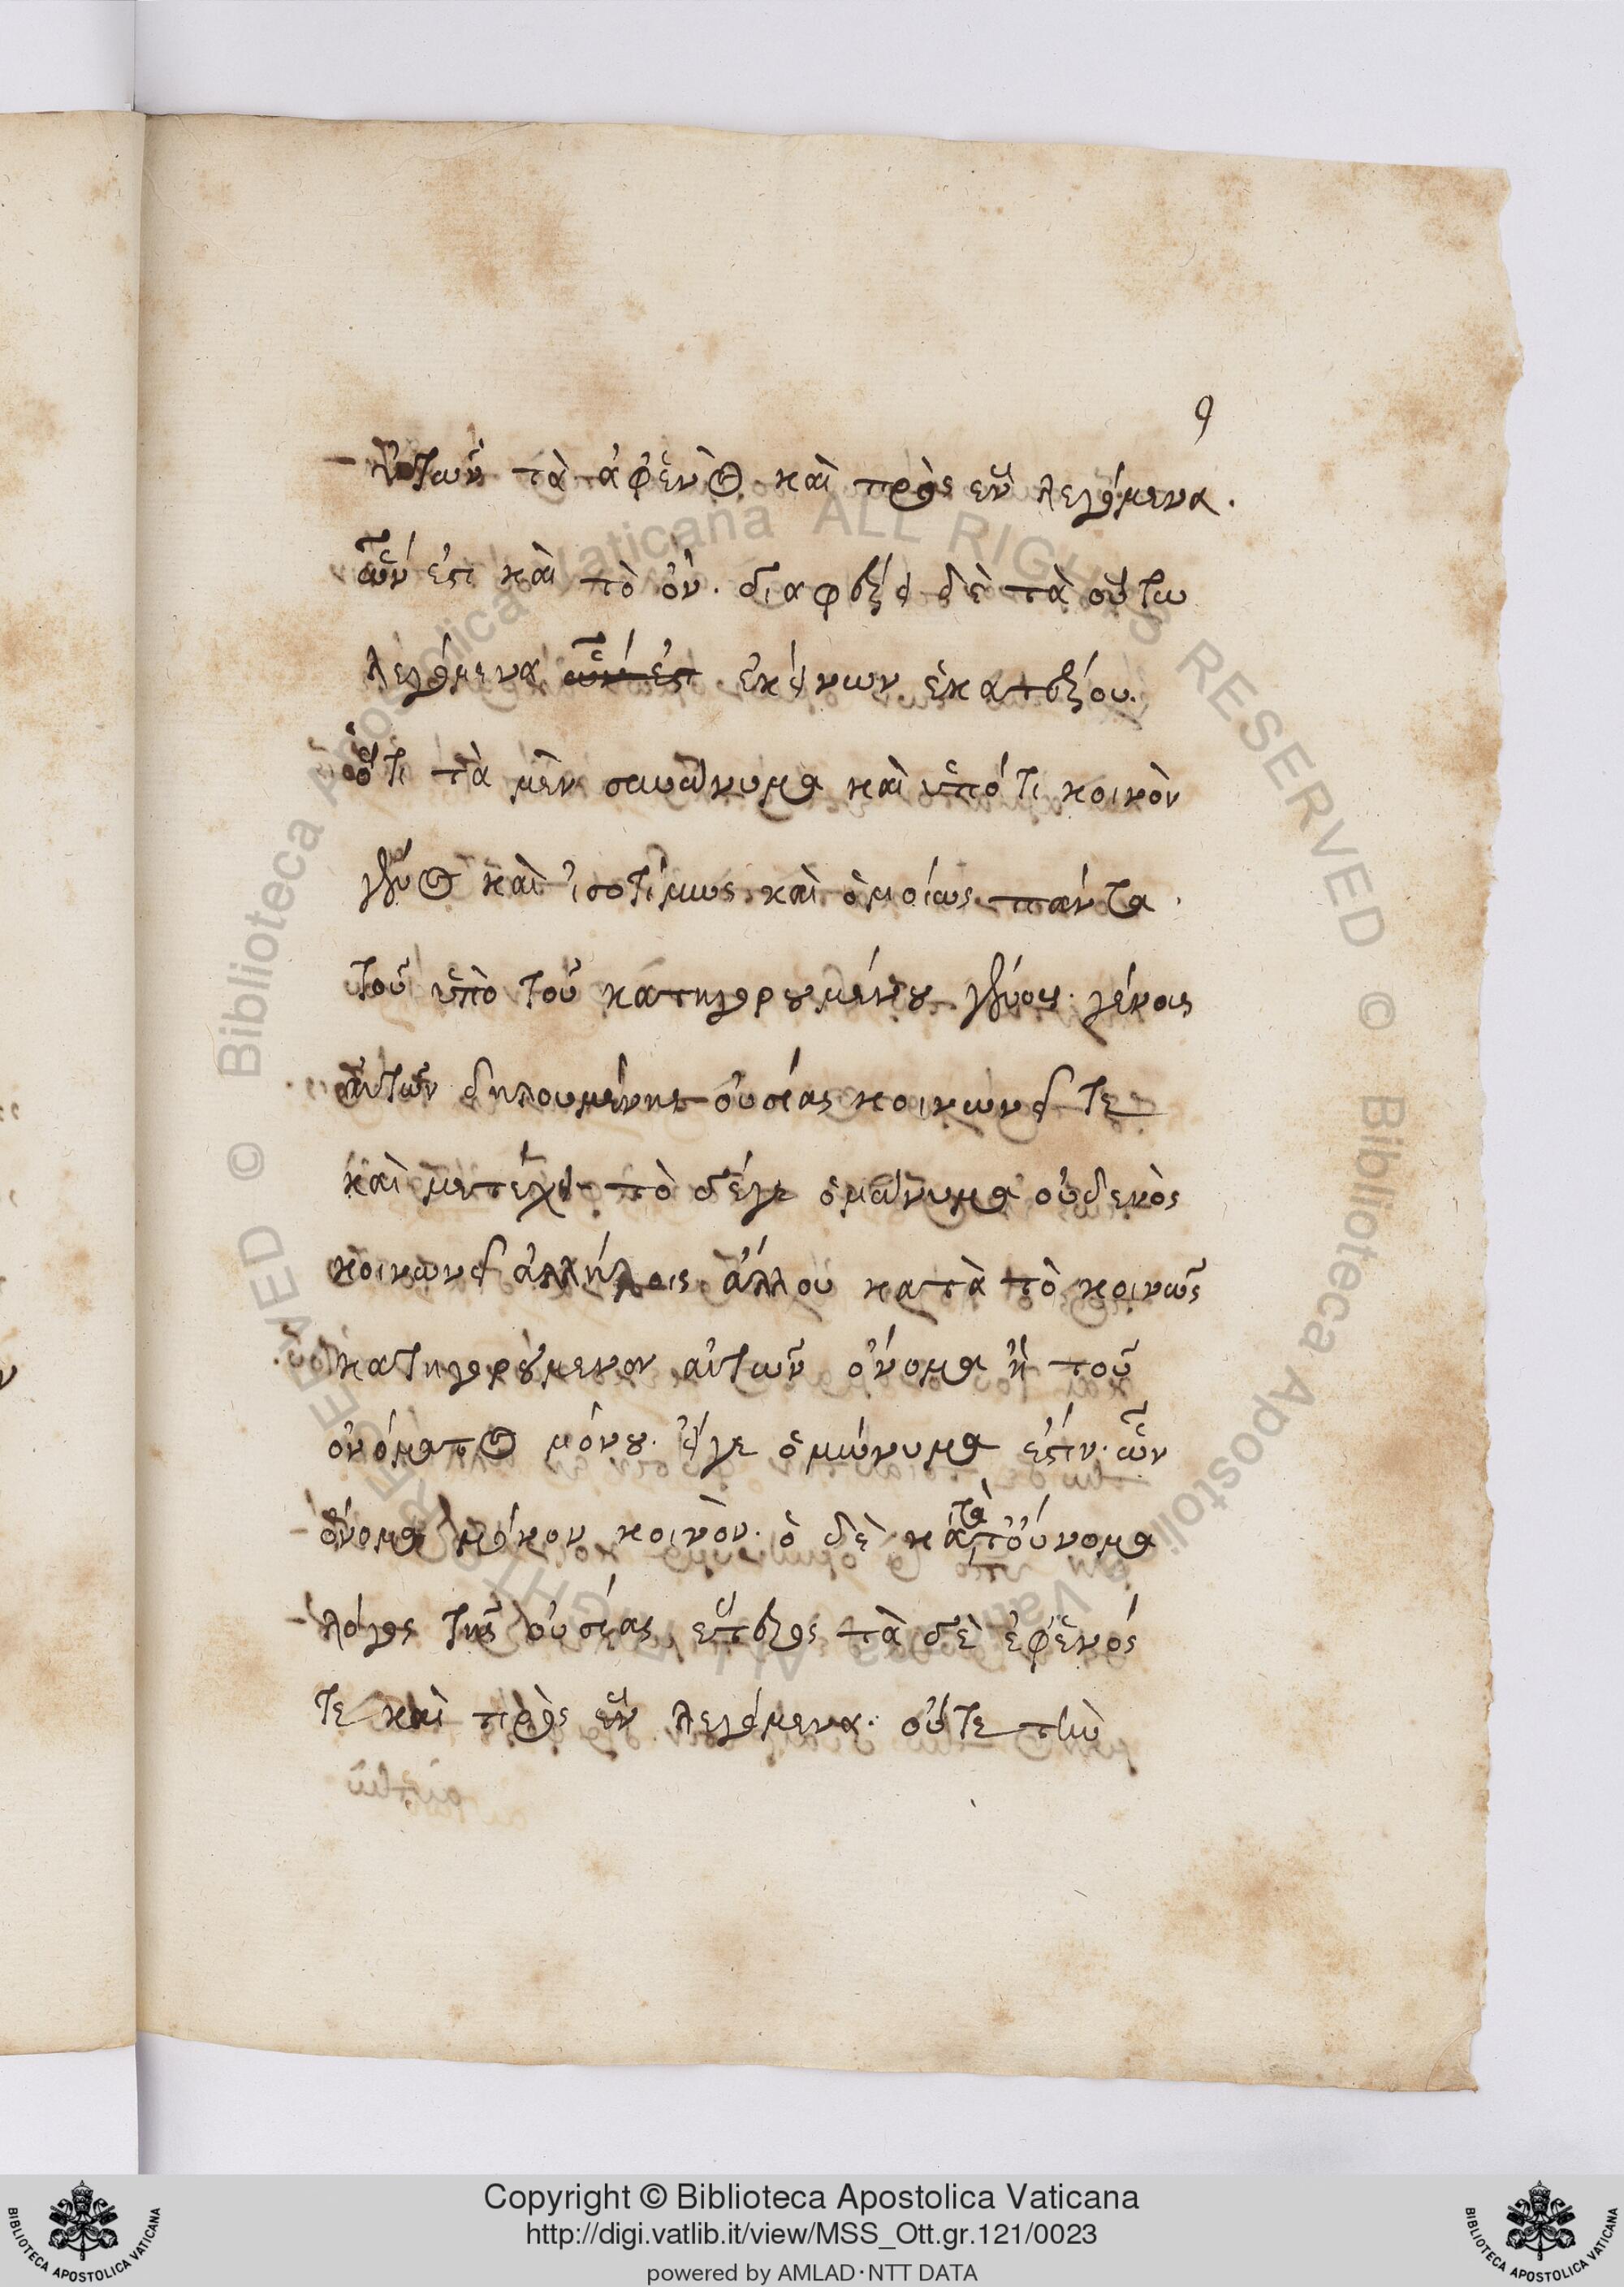 9
αὐτῶν τὰ ἀφ' ἑνὸς καὶ πρὸς ἓν λεγόμενα.
ὧν ἐστι καὶ τὸ ὄν. διαφέρει δὲ τὰ οὕτω
λεγόμενα ὧν ἐστι ἐκείνων ἑκατέρου.
ὅτι τὰ μὲν συνώνυμα καὶ ὑπό τι κοινὸν
γένος καὶ ἰσοτίμως καὶ ὁμοίως πάντα.
τοῦ ὑπὸ τοῦ κατηγορουμένου γένους. γένους
αὐτῶν δηλουμένης οὐσίας κοινωνεῖ τε
καὶ μετέχει. τὸ δέ γε ὁμώνυμα οὐδενὸς
κοινωνεῖ ἀλλήλοις ἄλλου κατὰ τὸ κοινῶς
κατηγορούμενον αὐτῶν ὄνομα ἢ τοῦ
ὀνόματος μόνου. εἴγε ὁμώνυμα ἐστιν. ὧν
ὄνομα μόνον κοινὸν. ὁ δὲ κατὰ τοὔνομα
λόγος τῆς οὐσίας ἕτερος τὰ δὲ ἐφ' ἑνός
τε καὶ πρὸς ἓν λεγόμενα. οὔτε τὴν
Copyright © Biblioteca Apostolica Vaticana
http://digi.vatlib.it/view/MSS_Ott.gr.121/0023
powered by AMLAD·NTT DATA
BIBLIOTECA APOSTOLICA VATICANA
BIBLIOTECA APOSTOLICA VATICANA
© Biblioteca Apostolica Vaticana ALL RIGHTS RESERVED © Biblioteca Apostolica Vaticana ALL RIGHTS RESERVED